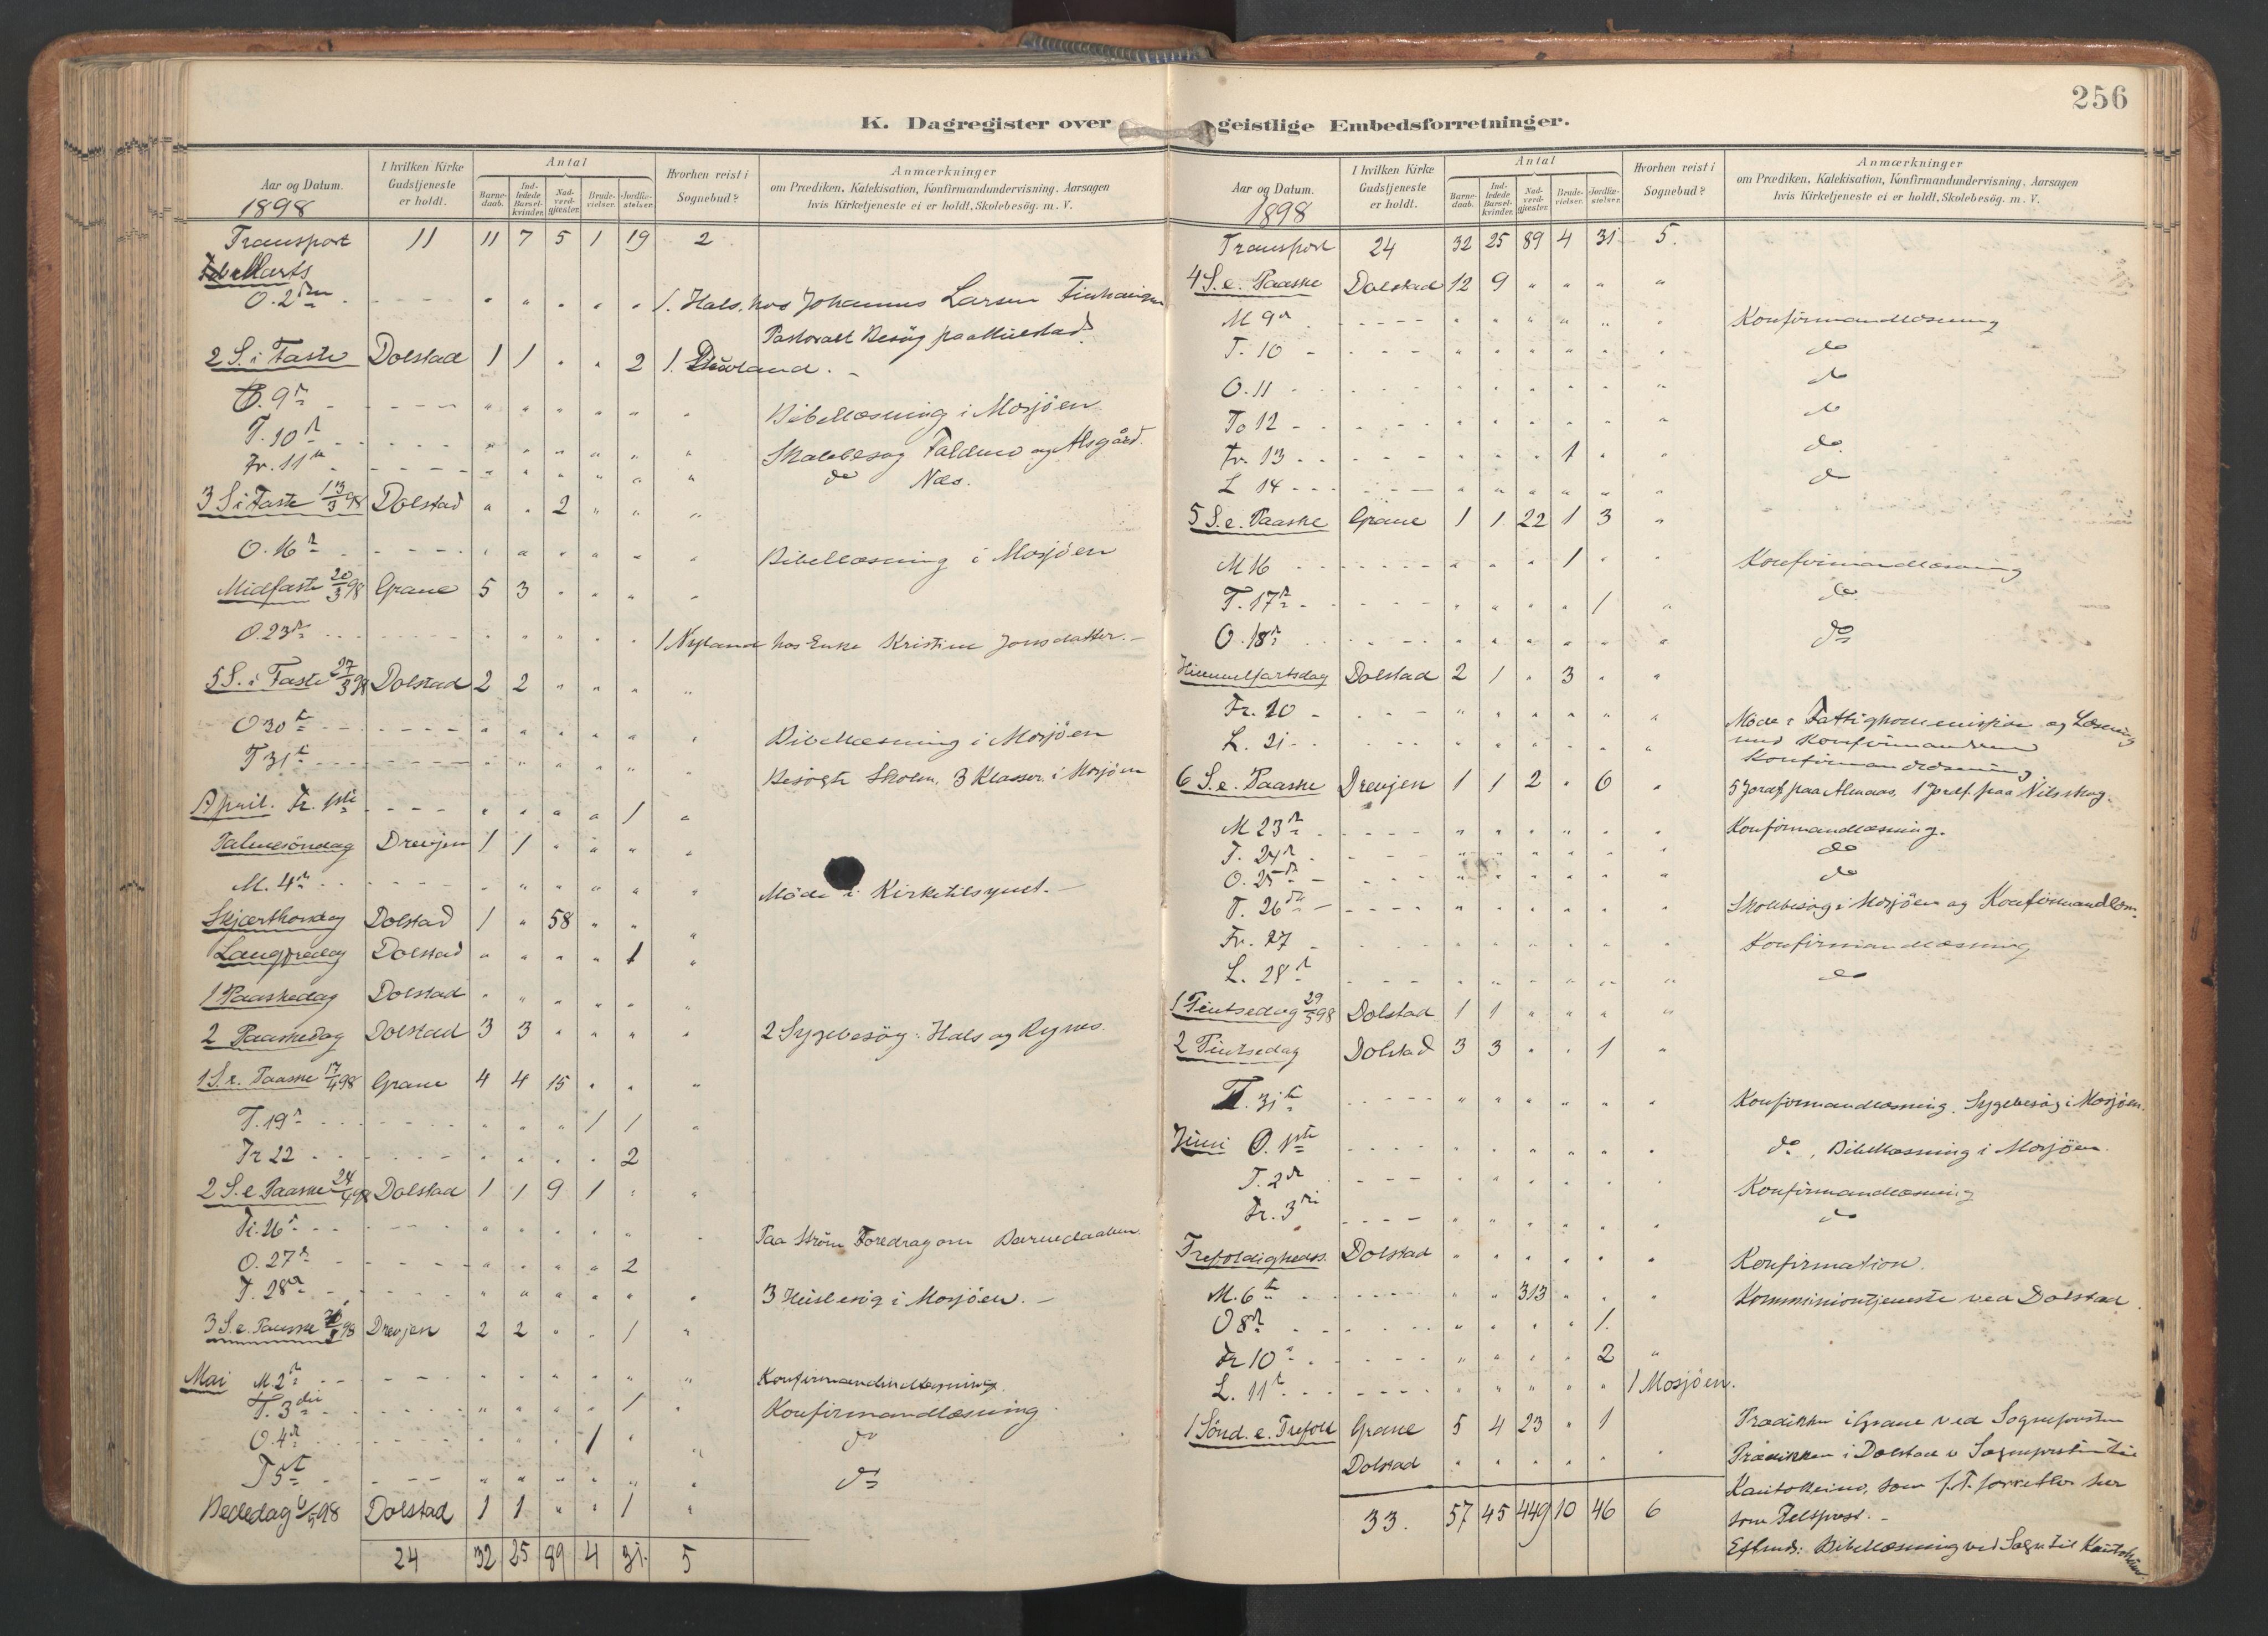 256
K. Dagregister over geistlige Embedsforretninger.
Aar og Datum. I hvilken Kirke Gudstjeneste er holdt. Antal Barnedaab. Indledede Barselkvinder. Nadverdgjæster. Brudevielser. Jordfæstelser. Hvorhen reist i Sognebud? Anmærkninger om Prædiken, Katekisation, Konfirmandundervisning, Aarsagen hvis Kirketjeneste ei er holdt, Skolebesög. m. V.
1898
Transport 11 11 7 5 1 19 2
Marts
O. 2den - - - - " " " " " 1. Hals, hos Johannes Larsen
Pastoralt Besög paa
2 S. i Faste Dolstad 1 1 " " 2 1.
O. 9de - - - - " " " " " " Bibellæsning i Mosjöen
T. 10de - - - - " " " " " " Skolebesög Faldmo og Alsgård.
Fr. 11te - - - - " " " " " " do Næs.
3 S i Faste 13/3 98 Dolstad " " 2 " " "
O. 16de - - - - " " " " " " Bibellæsning i Mosjöen
Midfaste 20/3 98 Grane 5 3 " " " "
O. 23de - - - - " " " " " 1 Nyland hos Enke Kristine Jonsdatter. -
5 S. i Faste 27/3 98 Dolstad 2 2 " " " "
O 30te - - - - " " " " " " Bibellæsning i Mosjöen
T 31te - - - - " " " " " " Besögte Skolen, 3 Klasser i Mosjöen
April. Fr. 1ste - - - - " " " " 1 "
Palmesöndag Drevjen 1 1 " " " "
M. 4de - - - - " " " " " " Möde i Kirketilsynet. -
Skjærthorsdag Dolstad 1 " 58 " " "
Langfredag Dolstad " " " " 1 "
1 Paaskedag Dolstad " " " " " "
2 Paaskedag Dolstad 3 3 " " " " 2 Sygebesög: Hals og Rynes.
1 S. e. Paaske 17/4 98 Grane 4 4 15 " " "
T. 19de - - - - " " " 1 1 "
Fr 22 - - - - " " " " 2
2 S. e Paaske 24/4 98 Dolstad 1 1 9 1 " "
Ti. 26de - - - - " " " " " " Paa Ström Foredrag om Barnedaaben.
O. 27de - - - - " " " " 2
T. 28de - - - - " " " " " " 3 Husbesög i Mosjöen. -
3 S. e. Paaske 98 Drevjen 2 2 " " 1 "
Mai M. 2den - - - - " " " " " "
T. 3die - - - - " " " " 1 " Konfirmandlæsning.
O. 4de - - - - " " " 1 " " do
T 5te - - - - " " " " " " do
Bededag 6/5 98 Dolstad 1 1 " " 1 "
24 32 25 89 4 31. 5
Aar og Datum. I hvilken Kirke Gudstjeneste er holdt. Antal Barnedaab. Indledede Barselkvinder. Nadverdgjæster. Brudevielser. Jordfæstelser. Hvorhen reist i Sognebud? Anmærkninger om Prædiken, Katekisation, Konfirmandundervisning, Aarsagen hvis Kirketjeneste ei er holdt, Skolebesög. m. V.
1898
Transport 24 32 25 89 4 31 5.
4 S. e. Paaske Dolstad 12 9 " " " "
M 9de - - - - " " " " " " Konfirmandlæsning
T. 10 - - - - " " " " " " do
O. 11 - - - - " " " " " " do
To 12 - - - - " " " " " " do
Fr. 13 - - - - " " " 1 " " do
L 14 - - - - " " " " " " do
5 S. e. Paaske Grane 1 1 22 1 3 "
M 16 - - - - " " " 1 " " Konfirmandlæsning
T. 17de - - - - " " " " 1 " do
O. 18de - - - - " " " " " " do
Himmelfartsdag Dolstad 2 1 " 3 " "
Fr. 20 - - - - " " " " " " Möde i Fattigkommision og Læsning
L. 21 - - - - " " " " " " med Konfirmanderne
Konfirmandlæsning
6 S. e. Paaske Drevjen 1 1 2 " 6 " 5 Jordf. paa Almaas, 1 Jordf. paa Nilsskog.
M 23de - - - - " " " " " " Konfirmandlæsning.
T. 24de - - - - " " " " " " do
O. 25de - - - - " " " " " " do
T. 26de - - - - " " " " " " Skolebesög i Mosjöen og Konfirmandlæsn.
Fr. 27 - - - - " " " " " " Konfirmandlæsning
L. 28de - - - - " " " " " " do
1 Pintsedag 29/5 98 Dolstad 1 1 " " " "
2 Pintsedag Dolstad 3 3 " " 1 "
T. 31te - - - - " " " " " " Konfirmandlæsning. Sygebesög i Mosjöen.
Juni O. 1ste - - - - " " " " " " do, Bibellæsning i Mosjöen.
T. 2den - - - - " " " " " " Konfirmandlæsning
Fr. 3die - - - - " " " " " " do
Trefoldigheds. Dolstad " " " " " " Konfirmation.
M. 6te - - - - " " 313 " " " Kommuniontjeneste ved Dolstad.
O 8de - - - - " " " " 1.
Fr 10de - - - - " " " " 2 "
L. 11te - - - - " " " " " 1 Mosjöen.
1 Sönd. e. Trefold Grane 5 4 23 " 1 Prædiken i Grane ved Sognepresten
Dolstad " " " " " Prædiken i Dolstad v Sognepresten til
Kautokeino, som f. T. forretter her
som Feltprest. -
33. 57 45 449 10 46 6
Eftmd: Bibellæsning ved Sogn til Kautokeino.